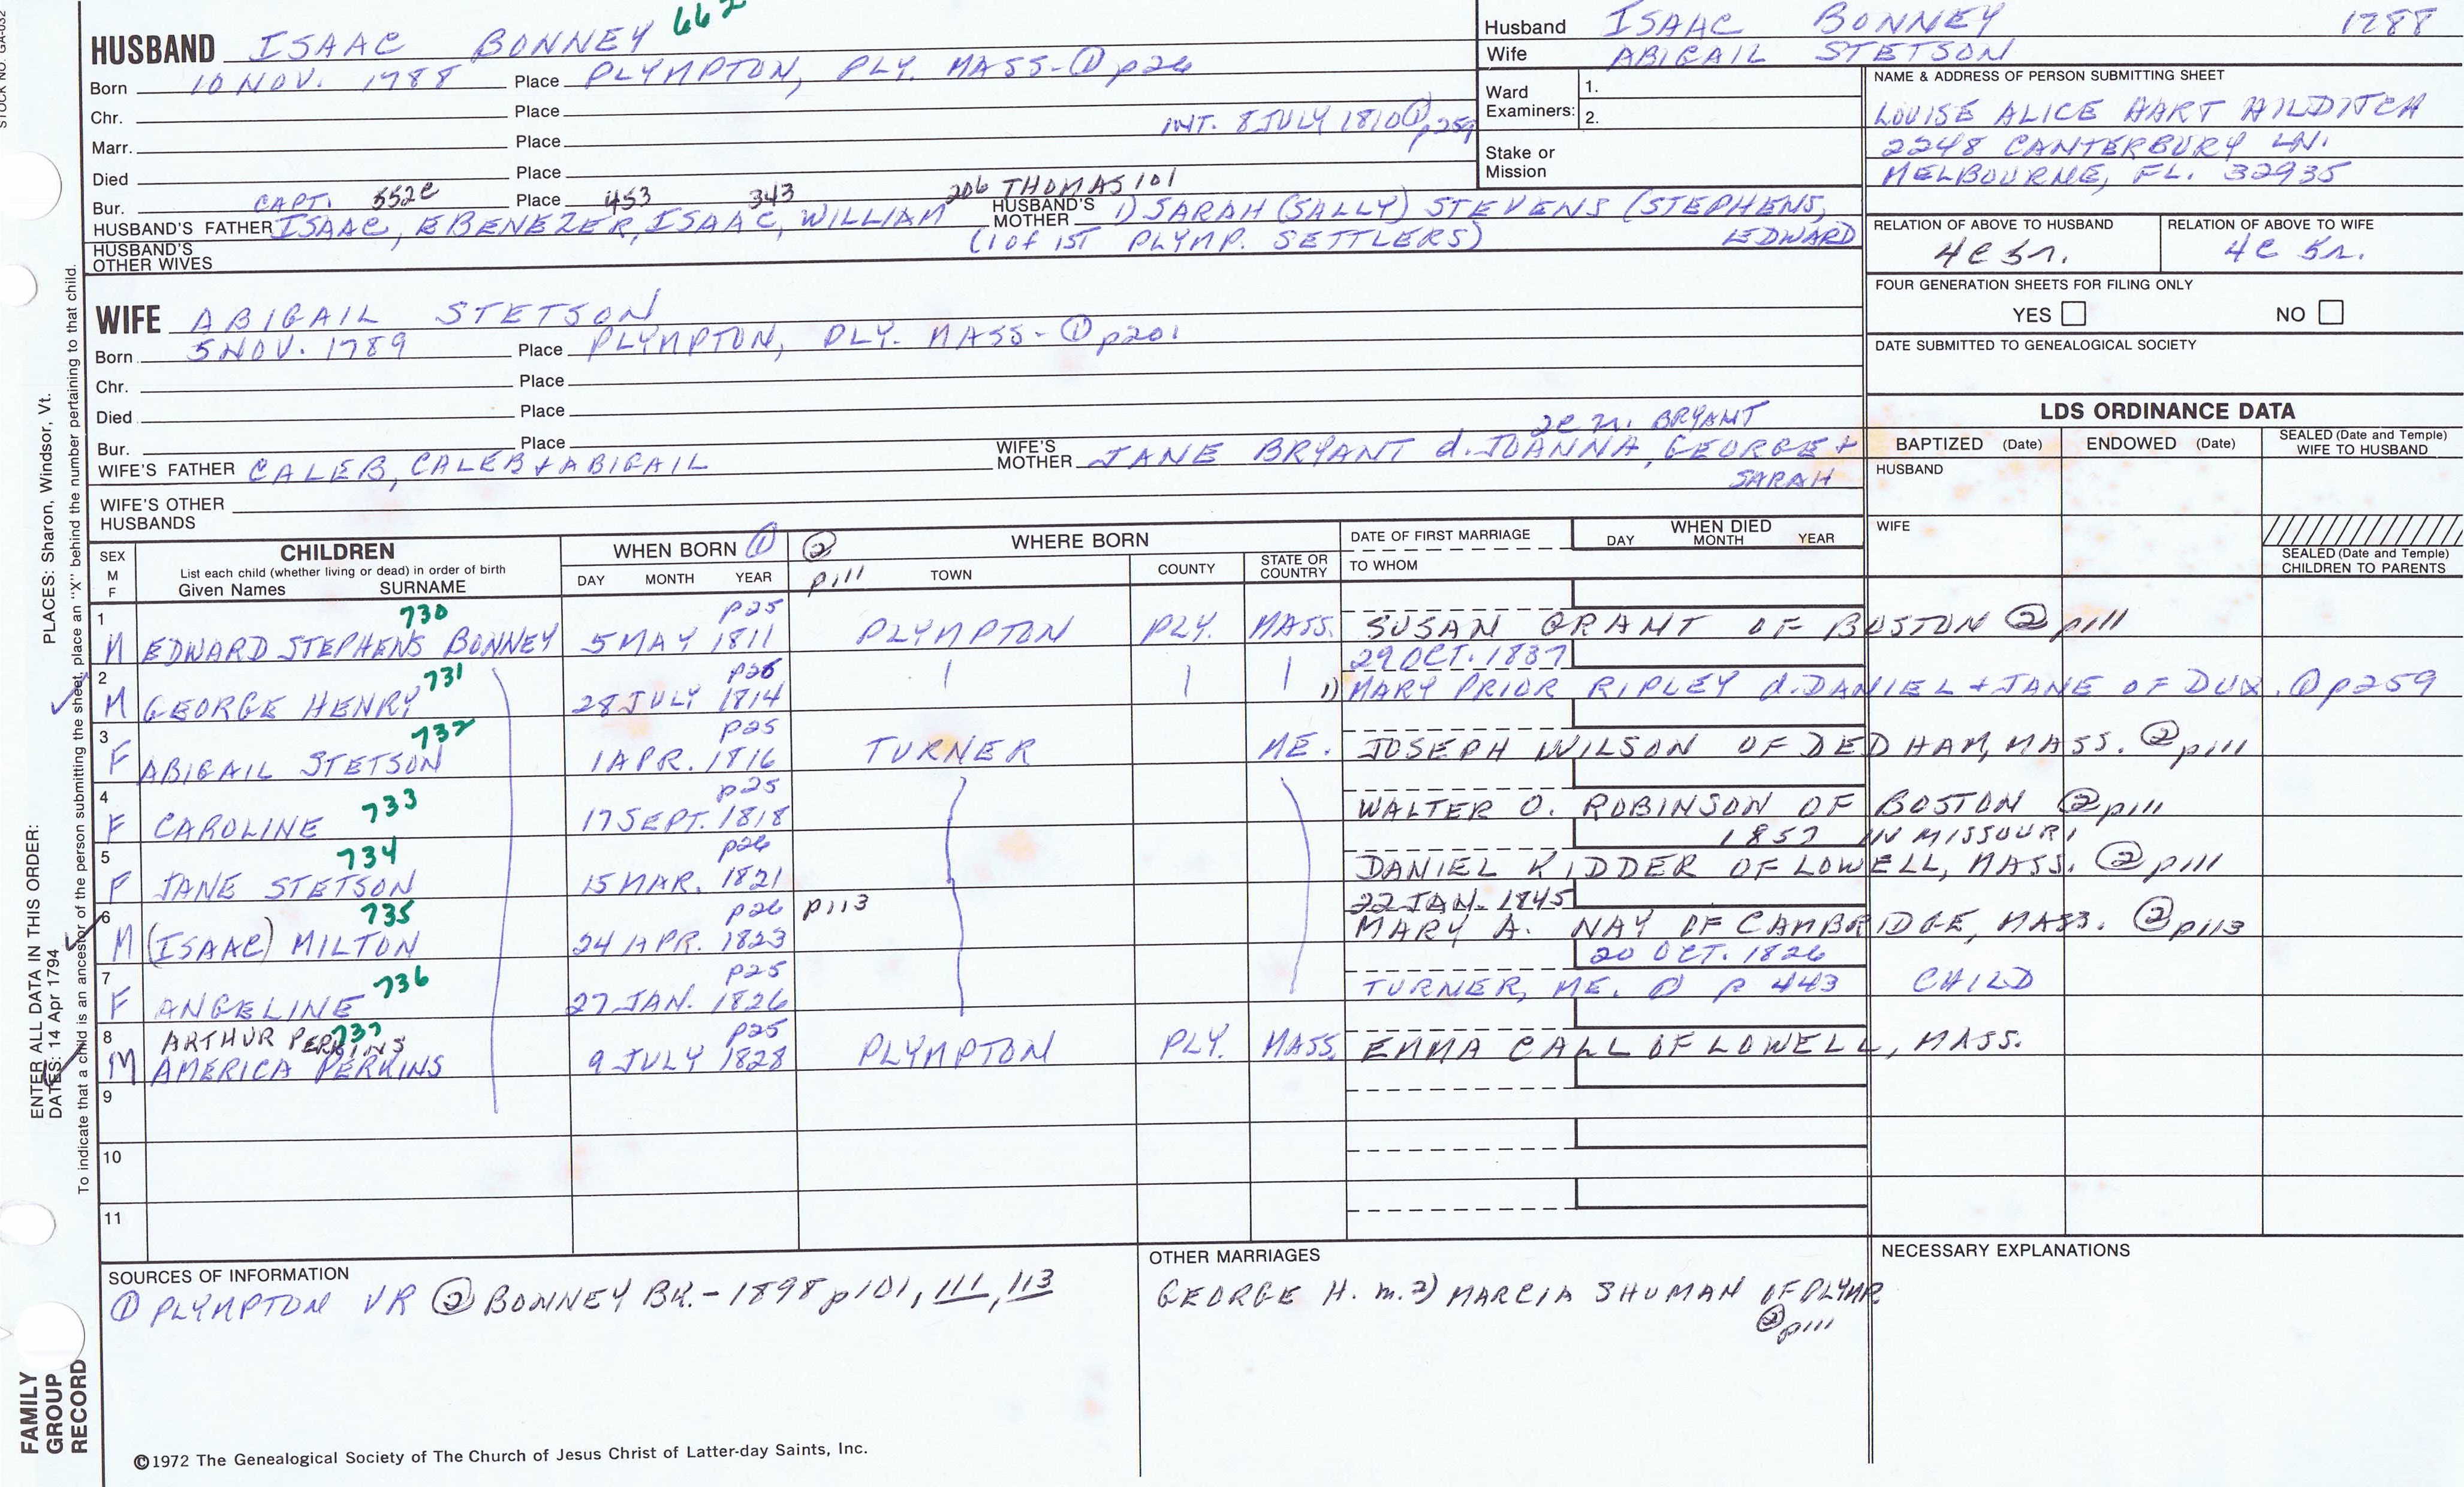 STOCK NO. GA-032
HUSBAND ISAAC BONNEY 662
Born 10 NOV. 1788 Place PLYMPTON, PLY. MASS-① p26
Chr. Place
INT. 8 JULY 1810 ① p259
Marr. Place
Died Place
Bur. CAPT. 552e Place 453 343 206 THOMAS 101
HUSBAND'S FATHER ISAAC, EBENEZER, ISAAC, WILLIAM HUSBAND'S MOTHER 1) SARAH (SALLY) STEVENS (STEPHENS,
(1 of 1ST PLYMP. SETTLERS) EDWARD
HUSBAND'S OTHER WIVES
Husband ISAAC BONNEY 1788
Wife ABIGAIL STETSON
Ward Examiners: 1.
2.
Stake or Mission
NAME & ADDRESS OF PERSON SUBMITTING SHEET
LOUISE ALICE HART HILDITCH
2248 CANTERBURY LN.
MELBOURNE, FL. 32935
RELATION OF ABOVE TO HUSBAND RELATION OF ABOVE TO WIFE
4C 5r. 4C 5r.
FOUR GENERATION SHEETS FOR FILING ONLY
YES NO
DATE SUBMITTED TO GENEALOGICAL SOCIETY
WIFE ABIGAIL STETSON
Born 5 NOV. 1789 Place PLYMPTON, PLY. MASS- ① p201
Chr. Place
Died Place
Bur. Place
BRYANT
WIFE'S FATHER CALEB, CALEB + ABIGAIL WIFE'S MOTHER JANE BRYANT d. JOANNA, GEORGE +
SARAH
WIFE'S OTHER HUSBANDS
LDS ORDINANCE DATA
BAPTIZED (Date) ENDOWED (Date) SEALED (Date and Temple) WIFE TO HUSBAND
HUSBAND
WIFE
SEALED (Date and Temple) CHILDREN TO PARENTS
SEX M F
CHILDREN
List each child (whether living or dead) in order of birth
Given Names SURNAME
WHEN BORN ①
DAY MONTH YEAR
② p111
WHERE BORN
TOWN COUNTY STATE OR COUNTRY
DATE OF FIRST MARRIAGE
TO WHOM
WHEN DIED
DAY MONTH YEAR
730 p25
1 M EDWARD STEPHENS BONNEY 5 MAY 1811 PLYMPTON PLY. MASS. SUSAN GRANT OF BOSTON ② p111
731 p26 29 OCT. 1837
2 M GEORGE HENRY 28 JULY 1814 1) MARY PRIOR RIPLEY d. DANIEL + JANE OF DUX. ① p259
732 p25
3 F ABIGAIL STETSON 1 APR. 1816 TURNER ME. JOSEPH WILSON OF DEDHAM, MASS. ② p111
733 p25
4 F CAROLINE 17 SEPT. 1818 WALTER O. ROBINSON OF BOSTON ② p111
734 p26 1857 IN MISSOURI
5 F JANE STETSON 15 MAR. 1821 DANIEL KIDDER OF LOWELL, MASS. ② p111
735 p26 p113 22 JAN. 1845
6 M (ISAAC) MILTON 24 APR. 1823 MARY A. NAY OF CAMBRIDGE, MASS. ② p113
736 p25 20 OCT. 1826
7 F ANGELINE 27 JAN. 1826 TURNER, ME. ① p 443 CHILD
ARTHUR PERKINS 737 p25
8 M AMERICA PERKINS 9 JULY 1828 PLYMPTON PLY. MASS. EMMA CALL OF LOWELL, MASS.
9
10
11
SOURCES OF INFORMATION
① PLYMPTON VR ② BONNEY BK. - 1898 p101, 111, 113
OTHER MARRIAGES
GEORGE H. m. 2) MARCIA SHUMAN OF PLYMP.
② p111
NECESSARY EXPLANATIONS
©1972 The Genealogical Society of The Church of Jesus Christ of Latter-day Saints, Inc.
FAMILY GROUP RECORD
ENTER ALL DATA IN THIS ORDER:
DATES: 14 Apr 1794
PLACES: Sharon, Windsor, Vt.
To indicate that a child is an ancestor of the person submitting the sheet, place an "X" behind the number pertaining to that child.